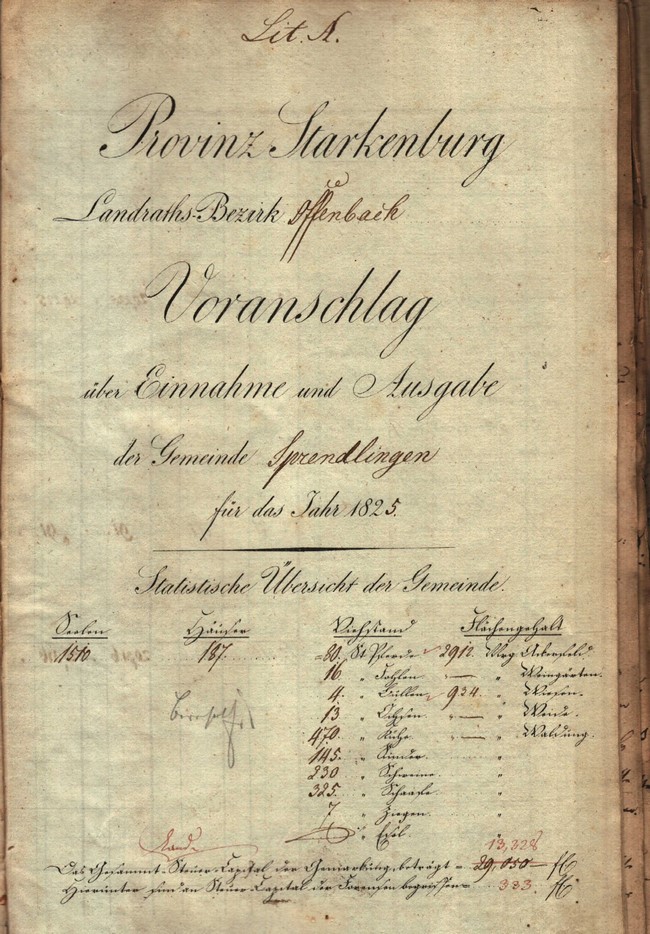 Lit. A.
Provinz Starkenburg
Landraths-Bezirk Offenbach
Voranschlag
über Einnahme und Ausgabe
der Gemeinde Sprendlingen
für das Jahr 1825.
Statistische Übersicht der Gemeinde.
Seelen Häuser Viehstand Flächengehalt
1510 187. 80. St Pferde 2912. Mrg Ackerfeld.
16 " Fohlen — " Weingärten.
4. " Bullen 934. " Wiesen.
13 " Ochsen. " — " Weide.
470. " Kühe " — " Waldung.
145. " Rinder. "
230 " Schweine. "
325. " Schaafe. "
7 " Ziegen. "
" Esel. "
13,228
Das Gesammt-Steuer-Capital der Gemarkung beträgt = 29,050 fl
Hierunter sind an Steuer-Capital der Forensen begriffen = 333. fl.